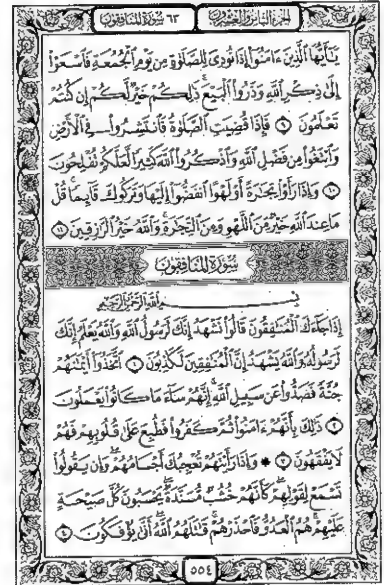 الجزء الثامن والعشرون ٦٣ سورة المنافقون
يَٰٓأَيُّهَا ٱلَّذِينَ ءَامَنُوٓا۟ إِذَا نُودِىَ لِلصَّلَوٰةِ مِن يَوْمِ ٱلْجُمُعَةِ فَٱسْعَوْا۟
إِلَىٰ ذِكْرِ ٱللَّهِ وَذَرُوا۟ ٱلْبَيْعَ ذَٰلِكُمْ خَيْرٌ لَّكُمْ إِن كُنتُمْ
تَعْلَمُونَ ٩ فَإِذَا قُضِيَتِ ٱلصَّلَوٰةُ فَٱنتَشِرُوا۟ فِى ٱلْأَرْضِ
وَٱبْتَغُوا۟ مِن فَضْلِ ٱللَّهِ وَٱذْكُرُوا۟ ٱللَّهَ كَثِيرًا لَّعَلَّكُمْ تُفْلِحُونَ
١٠ وَإِذَا رَأَوْا۟ تِجَٰرَةً أَوْ لَهْوًا ٱنفَضُّوٓا۟ إِلَيْهَا وَتَرَكُوكَ قَآئِمًا قُلْ
مَا عِندَ ٱللَّهِ خَيْرٌ مِّنَ ٱللَّهْوِ وَمِنَ ٱلتِّجَٰرَةِ وَٱللَّهُ خَيْرُ ٱلرَّٰزِقِينَ ١١
سورة المنافقون
بِسْمِ ٱللَّهِ ٱلرَّحْمَٰنِ ٱلرَّحِيمِ
إِذَا جَآءَكَ ٱلْمُنَٰفِقُونَ قَالُوا۟ نَشْهَدُ إِنَّكَ لَرَسُولُ ٱللَّهِ وَٱللَّهُ يَعْلَمُ إِنَّكَ
لَرَسُولُهُۥ وَٱللَّهُ يَشْهَدُ إِنَّ ٱلْمُنَٰفِقِينَ لَكَٰذِبُونَ ١ ٱتَّخَذُوٓا۟ أَيْمَٰنَهُمْ
جُنَّةً فَصَدُّوا۟ عَن سَبِيلِ ٱللَّهِ إِنَّهُمْ سَآءَ مَا كَانُوا۟ يَعْمَلُونَ
٢ ذَٰلِكَ بِأَنَّهُمْ ءَامَنُوا۟ ثُمَّ كَفَرُوا۟ فَطُبِعَ عَلَىٰ قُلُوبِهِمْ فَهُمْ
لَا يَفْقَهُونَ ٣ * وَإِذَا رَأَيْتَهُمْ تُعْجِبُكَ أَجْسَامُهُمْ وَإِن يَقُولُوا۟
تَسْمَعْ لِقَوْلِهِمْ كَأَنَّهُمْ خُشُبٌ مُّسَنَّدَةٌ يَحْسَبُونَ كُلَّ صَيْحَةٍ
عَلَيْهِمْ هُمُ ٱلْعَدُوُّ فَٱحْذَرْهُمْ قَٰتَلَهُمُ ٱللَّهُ أَنَّىٰ يُؤْفَكُونَ ٤
٥٥٤